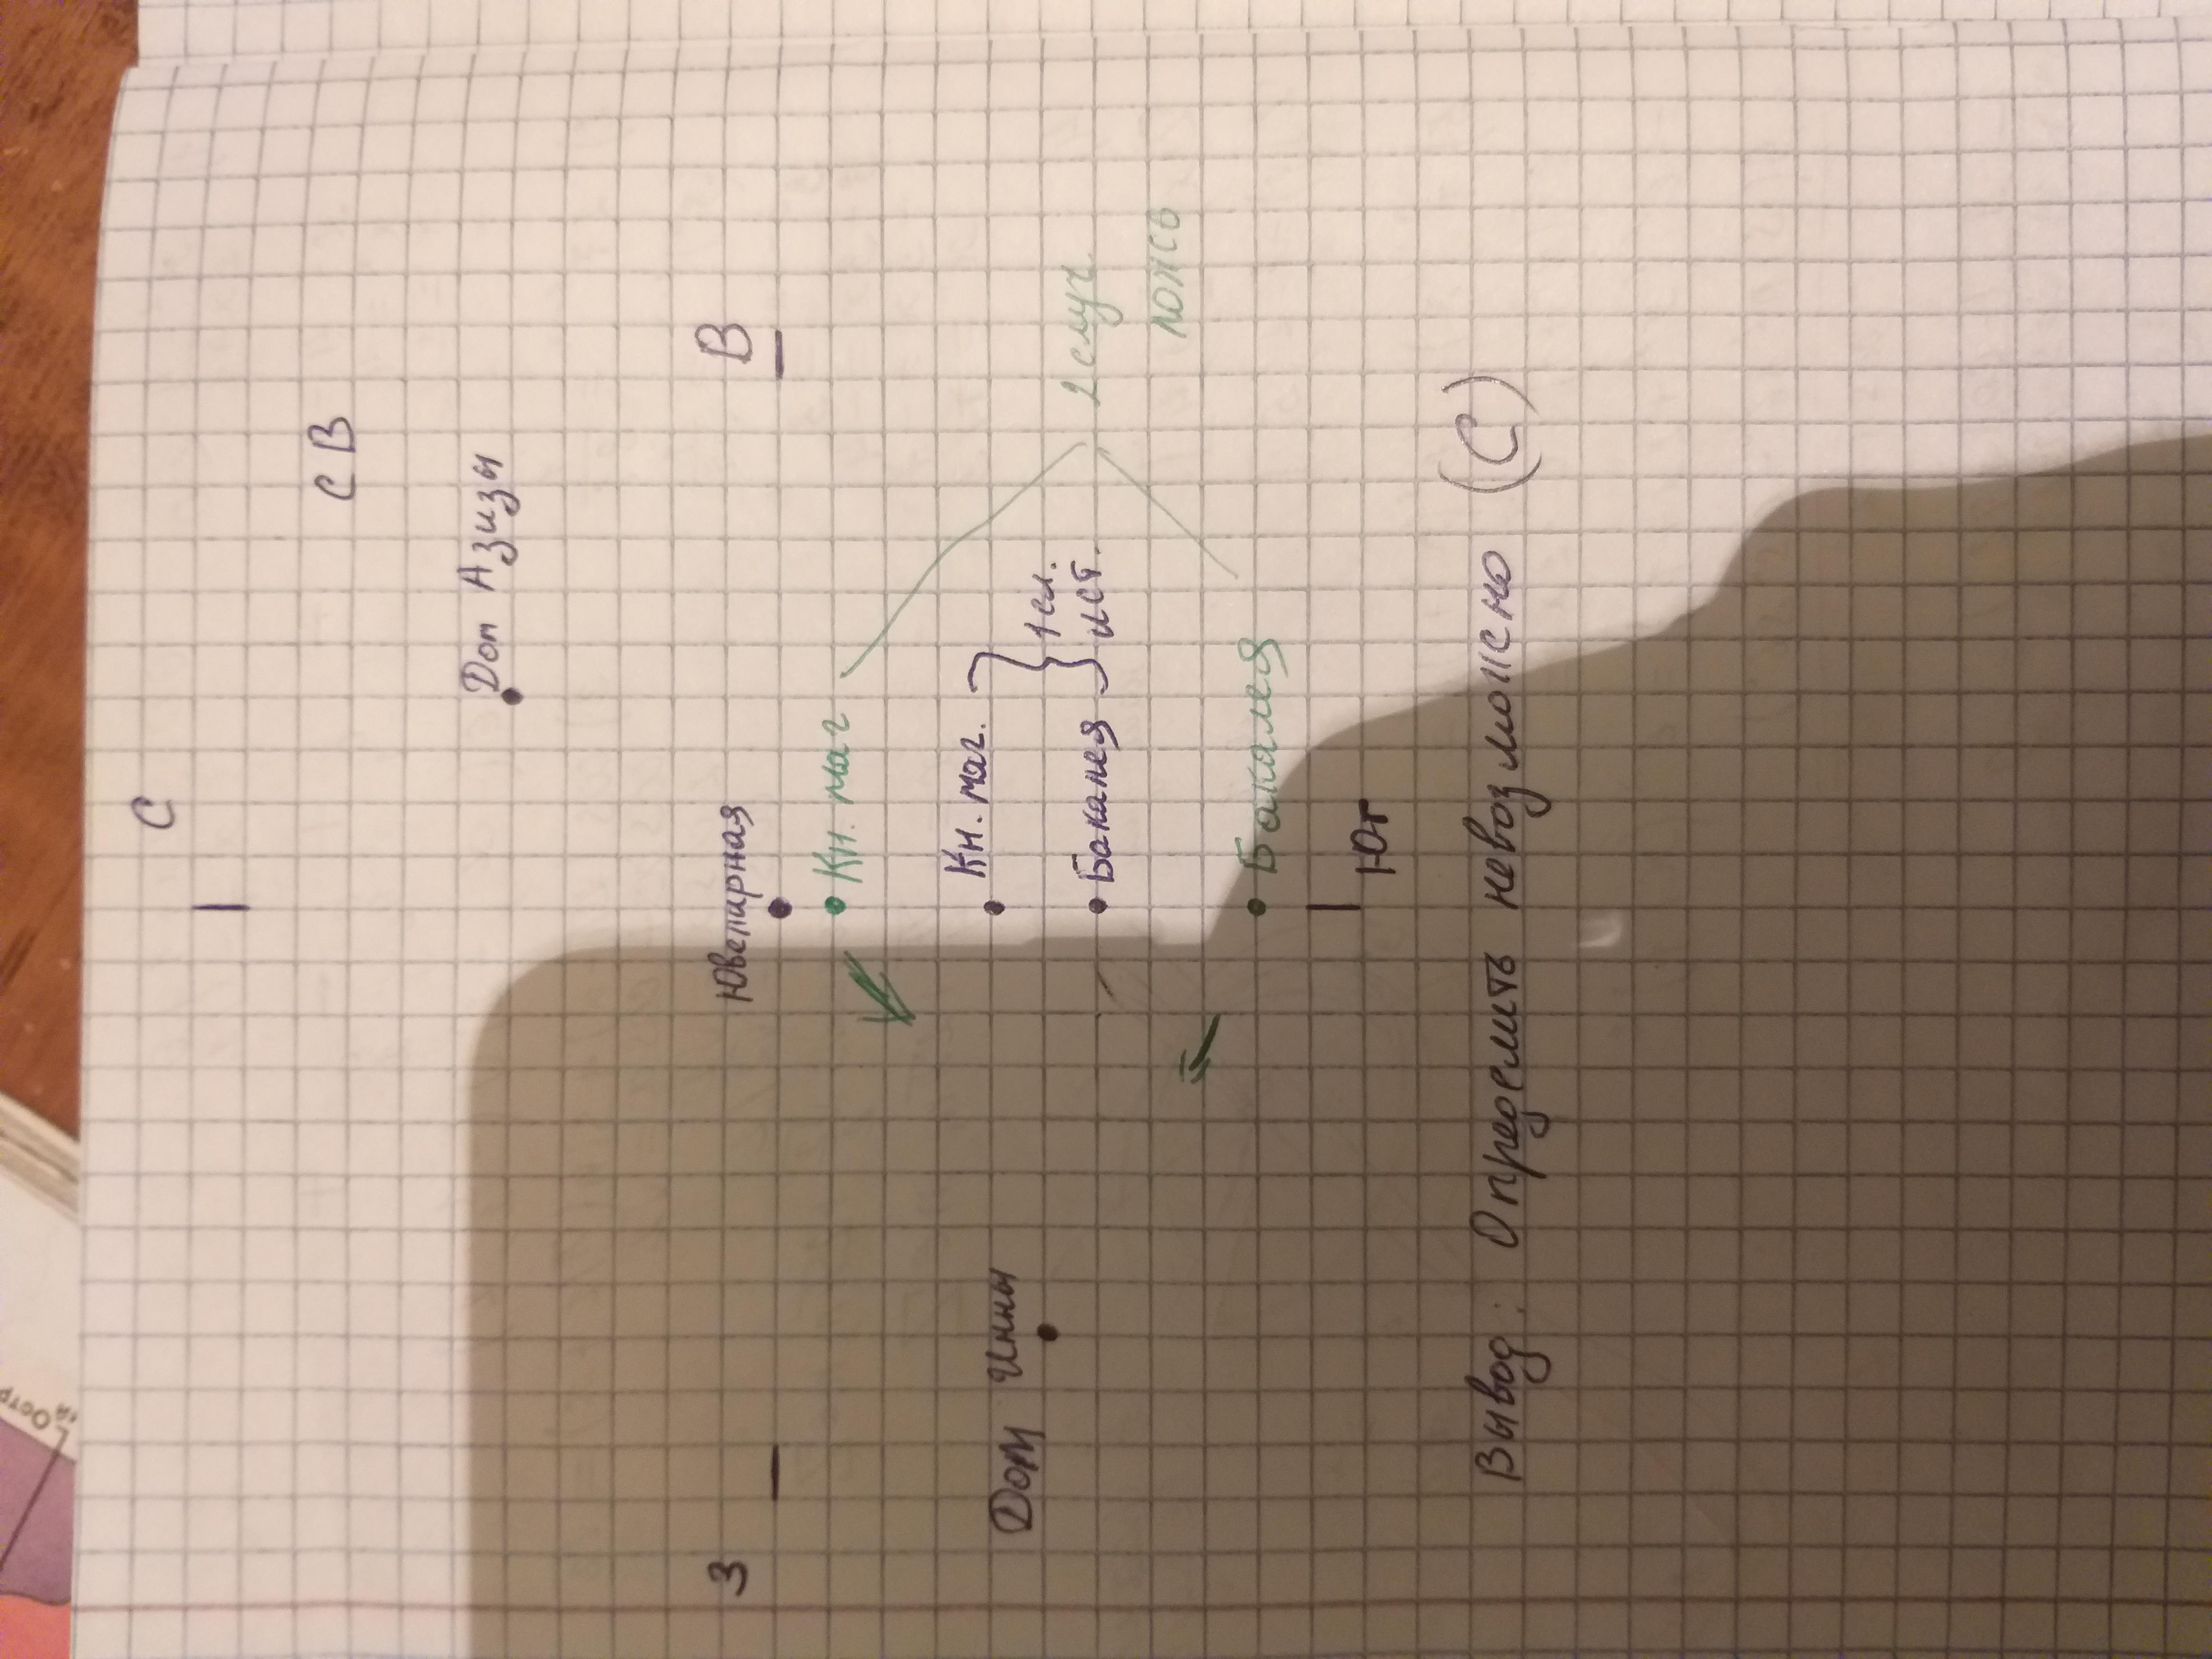 С
С В
Дом Азизы
Ювелирная
З
В
Кн. маг
Кн. маг.
1 сл.
ист.
2 случ
ложь
Дом Инны
Бакалея
Бакалея
Юг
Вывод: Определить невозможно (С)